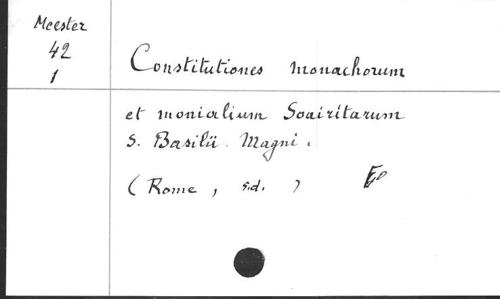 Meester
42
1
Constitutiones monachorum
et monialium Soairitarum
S. Basilii Magni.
(Rome, s.d. )